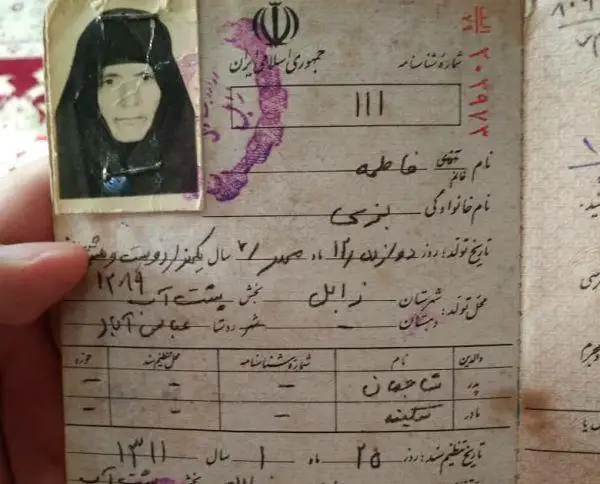 جمهوری اسلامی ایران
شماره شناسنامه
۲۰۲۹۷۲
۱۱۱
نام آقای خانم فاطمه
نام خانوادگی بزی
تاریخ تولد: روز دوازدهم ۱۲/ ماه مهر /۷ سال یکهزار دویست و هشتاد
۱۲۸۹
محل تولد: شهرستان زابل بخش پشت آب
دهستان — شهر روستا عباس آباد
والدین نام شماره شناسنامه محل تنظیم سند حوزه
پدر شاجهان — — —
مادر سکینه — — —
تاریخ تنظیم سند: روز ۲۵ ماه ۱ سال ۱۳۱۱
بخش پشت آب